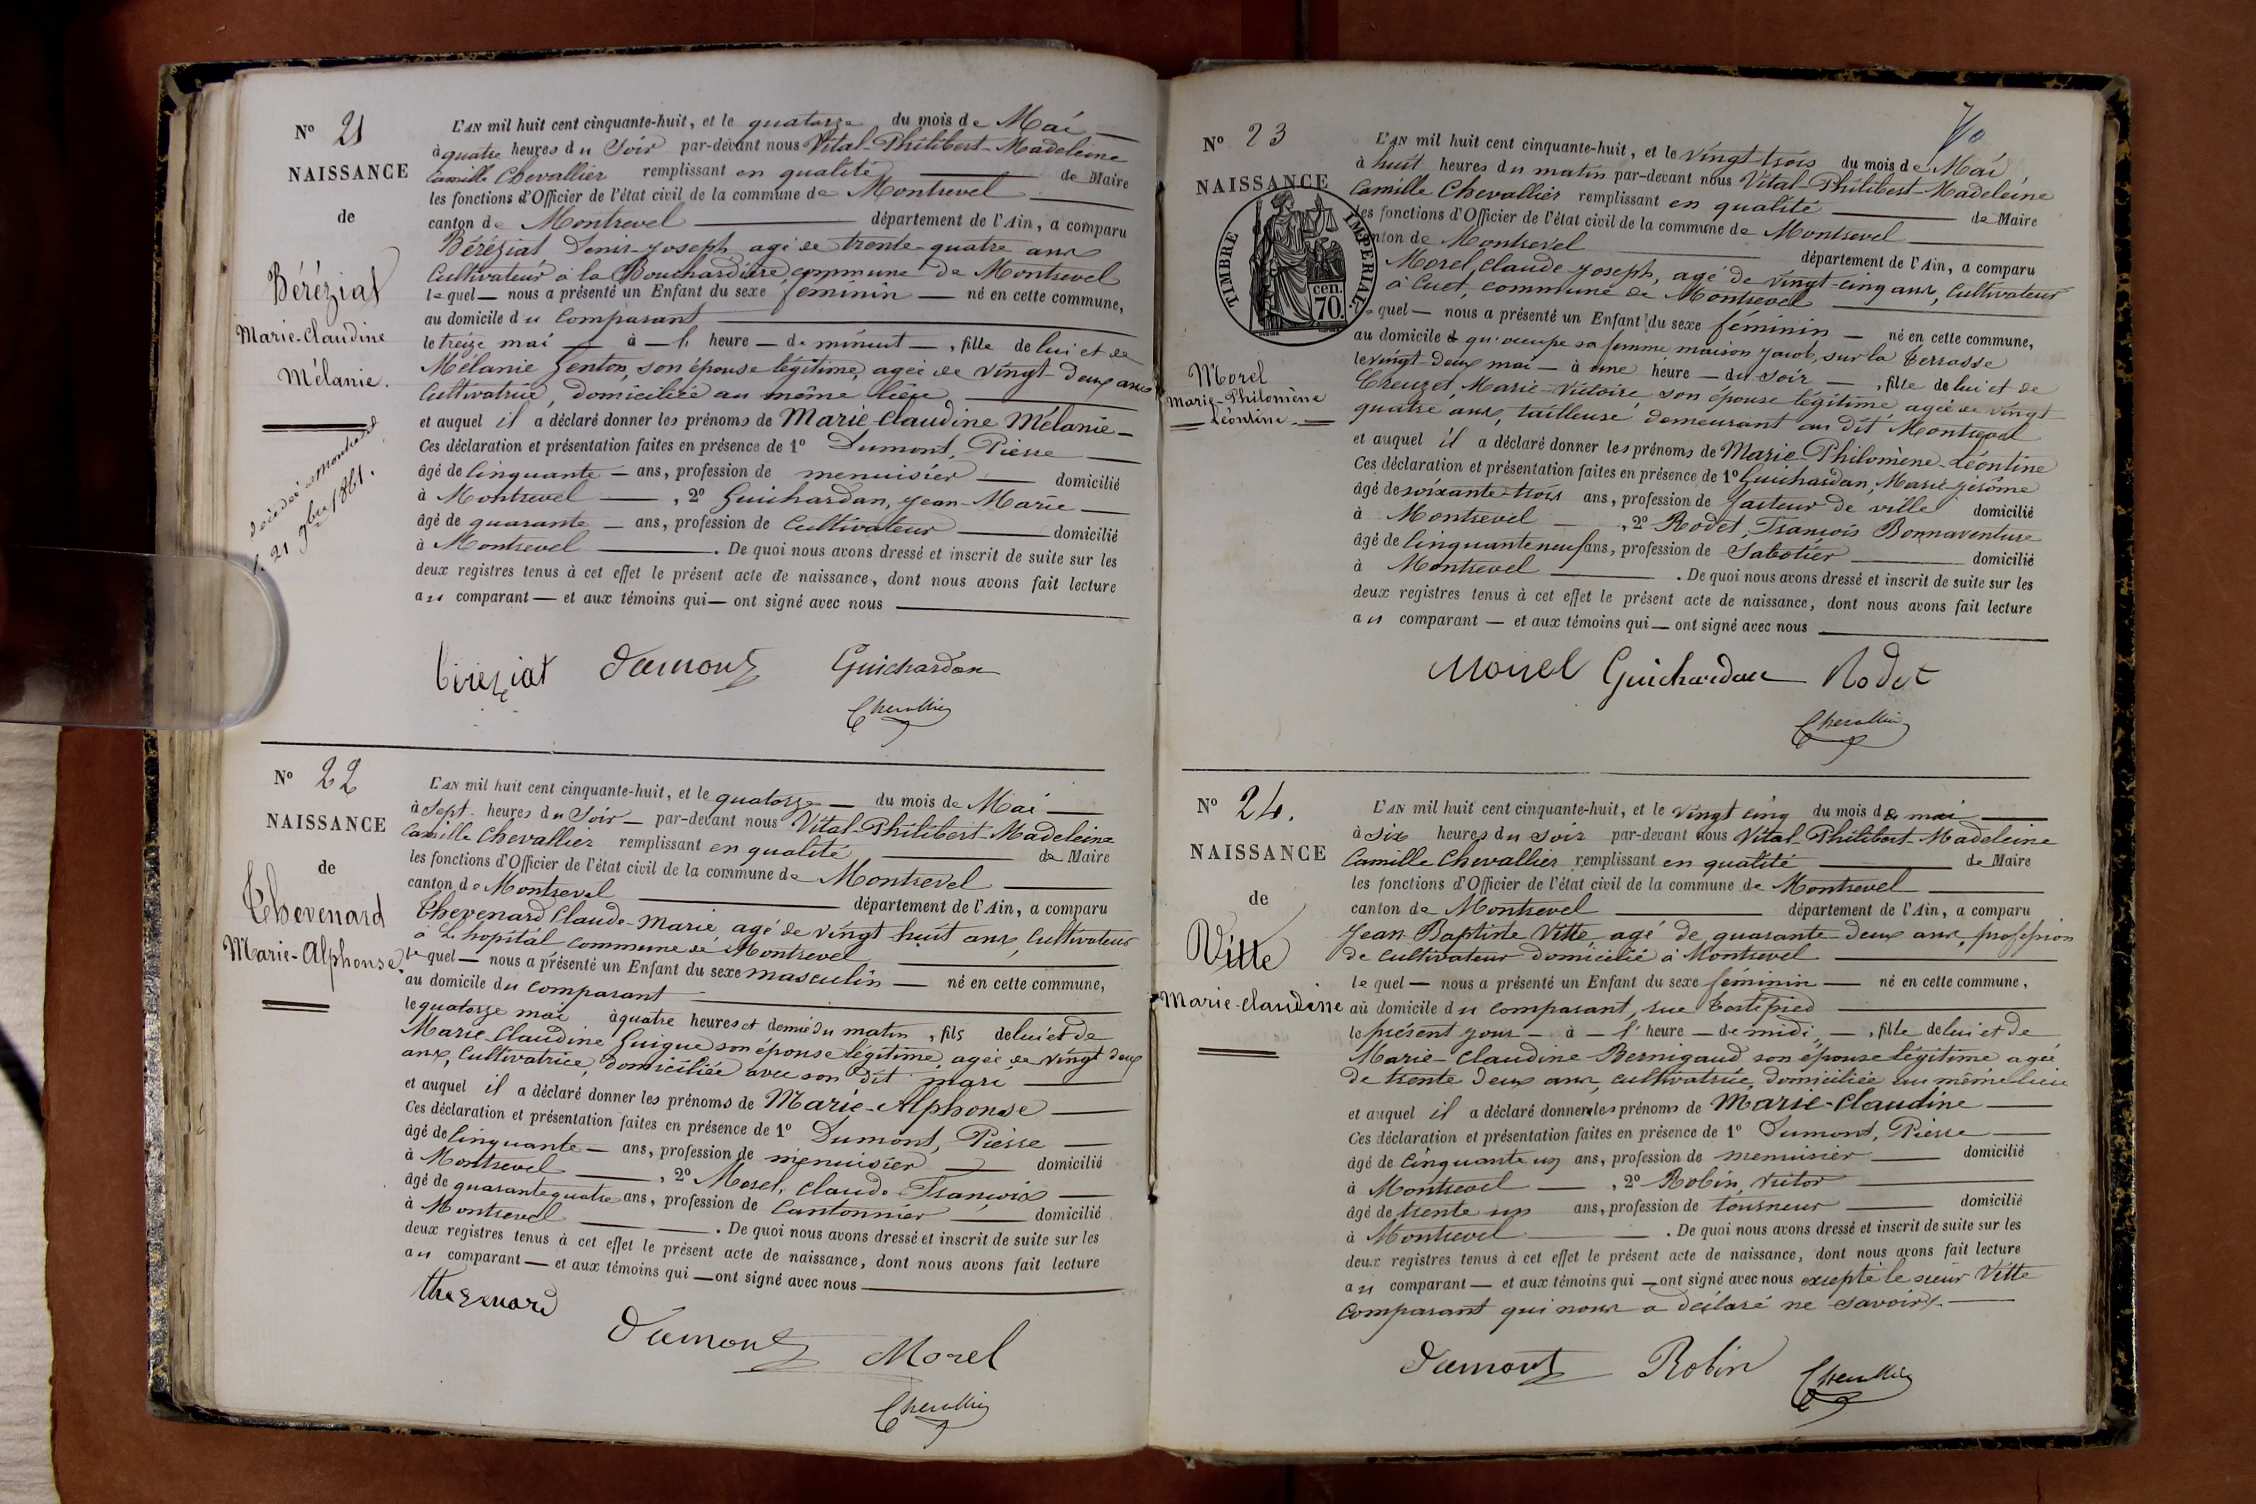 N° 21
NAISSANCE
de
Béréziat
Marie-Claudine
Mélanie.
décédée à Montherd
le 21 9bre 1861.
L'AN mil huit cent cinquante-huit, et le quatorze du mois de Mai
à quatre heures du Soir par-devant nous Vital-Philibert-Madeleine
Camille Chevallier remplissant en qualité de Maire
les fonctions d'Officier de l'état civil de la commune de Montrevel
canton de Montrevel département de l'Ain, a comparu
Béréziat Denis-Joseph, agé de trente-quatre ans
Cultivateur à la Bouchardière, commune de Montrevel
lequel nous a présenté un Enfant du sexe féminin né en cette commune,
au domicile du Comparant
le treize mai à l' heure de minuit, fille de lui et de
Mélanie Genton, son épouse légitime, agée de vingt-deux ans
Cultivatrice, domiciliée au même lieu
et auquel il a déclaré donner les prénoms de Marie Claudine Mélanie
Ces déclaration et présentation faites en présence de 1° Dumont, Pierre
âgé de Cinquante ans, profession de menuisier domicilié
à Montrevel, 2° Guichardan, Jean-Marie
âgé de quarante ans, profession de Cultivateur domicilié
à Montrevel. De quoi nous avons dressé et inscrit de suite sur les
deux registres tenus à cet effet le présent acte de naissance, dont nous avons fait lecture
au comparant et aux témoins qui ont signé avec nous
béreziat Dumont Guichardan
Chevallier
N° 22
NAISSANCE
de
Thevenard
Marie-Alphonse.
L'AN mil huit cent cinquante-huit, et le quatorze du mois de Mai
à Sept heures du Soir par-devant nous Vital-Philibert-Madeleine
Camille Chevallier remplissant en qualité de Maire
les fonctions d'Officier de l'état civil de la commune de Montrevel
canton de Montrevel département de l'Ain, a comparu
Thevenard Claude-Marie agé de vingt-huit ans, Cultivateur
à L'hopital commune de Montrevel
lequel nous a présenté un Enfant du sexe masculin né en cette commune,
au domicile du Comparant
le quatorze mai à quatre heures et demie du matin, fils de lui et de
Marie Claudine Guigue son épouse légitime, agée de vingt deux
ans, Cultivatrice, domiciliée avec son dit mari
et auquel il a déclaré donner les prénoms de Marie-Alphonse
Ces déclaration et présentation faites en présence de 1° Dumont, Pierre
âgé de Cinquante ans, profession de menuisier domicilié
à Montrevel, 2° Morel, Claude François
âgé de quarante quatre ans, profession de Cantonnier domicilié
à Montrevel. De quoi nous avons dressé et inscrit de suite sur les
deux registres tenus à cet effet le présent acte de naissance, dont nous avons fait lecture
au comparant et aux témoins qui ont signé avec nous
thevenard
Dumont Morel
Chevallier
N° 23
NAISSANCE
TIMBRE IMPÉRIAL.
70. cen.
Morel
Marie-Philomène
Léontine.
L'AN mil huit cent cinquante-huit, et le vingt trois du mois de Mai
à huit heures du matin par-devant nous Vital-Philibert-Madeleine
Camille Chevallier remplissant en qualité de Maire
les fonctions d'Officier de l'état civil de la commune de Montrevel
canton de Montrevel département de l'Ain, a comparu
Morel, Claude Joseph, agé de vingt-cinq ans, Cultivateur
à Cuet, commune de Montrevel
lequel nous a présenté un Enfant du sexe féminin né en cette commune,
au domicile d qu'occupe sa femme maison Jacob, sur la Terrasse
le vingt-deux mai à une heure du Soir, fille de lui et de
Creuzet, Marie-Victoire son épouse légitime, agée de vingt
quatre ans, tailleuse demeurant au dit Montrevel
et auquel il a déclaré donner les prénoms de Marie-Philomène-Léontine
Ces déclaration et présentation faites en présence de 1° Guichardan, Marie-Jérôme
âgé de soixante-trois ans, profession de facteur de ville domicilié
à Montrevel, 2° Rodet, François Bonnaventure
âgé de Cinquante neuf ans, profession de Sabotier domicilié
à Montrevel. De quoi nous avons dressé et inscrit de suite sur les
deux registres tenus à cet effet le présent acte de naissance, dont nous avons fait lecture
au comparant et aux témoins qui ont signé avec nous
Morel Guichardan Rodet
Chevallier
N° 24.
NAISSANCE
de
Vitte
Marie-Claudine
L'AN mil huit cent cinquante-huit, et le vingt cinq du mois de mai
à Six heures du soir par-devant nous Vital-Philibert-Madeleine
Camille Chevallier remplissant en qualité de Maire
les fonctions d'Officier de l'état civil de la commune de Montrevel
canton de Montrevel département de l'Ain, a comparu
Jean-Baptiste Vitte agé de quarante-deux ans, profession
de cultivateur domicilié à Montrevel
lequel nous a présenté un Enfant du sexe féminin né en cette commune,
au domicile du comparant, rue
le présent jour à l' heure de midi, fille de lui et de
Marie-Claudine Bernigaud son épouse légitime agée
de trente deux ans, cultivatrice, domiciliée au même lieu
et auquel il a déclaré donner les prénoms de Marie-Claudine
Ces déclaration et présentation faites en présence de 1° Dumont, Pierre
âgé de Cinquante un ans, profession de menuisier domicilié
à Montrevel, 2° Robin, Victor
âgé de trente un ans, profession de tourneur domicilié
à Montrevel. De quoi nous avons dressé et inscrit de suite sur les
deux registres tenus à cet effet le présent acte de naissance, dont nous avons fait lecture
au comparant et aux témoins qui ont signé avec nous excepté le sieur Vitte
comparant qui nous a déclaré ne savoir.
Dumont Robin Chevallier